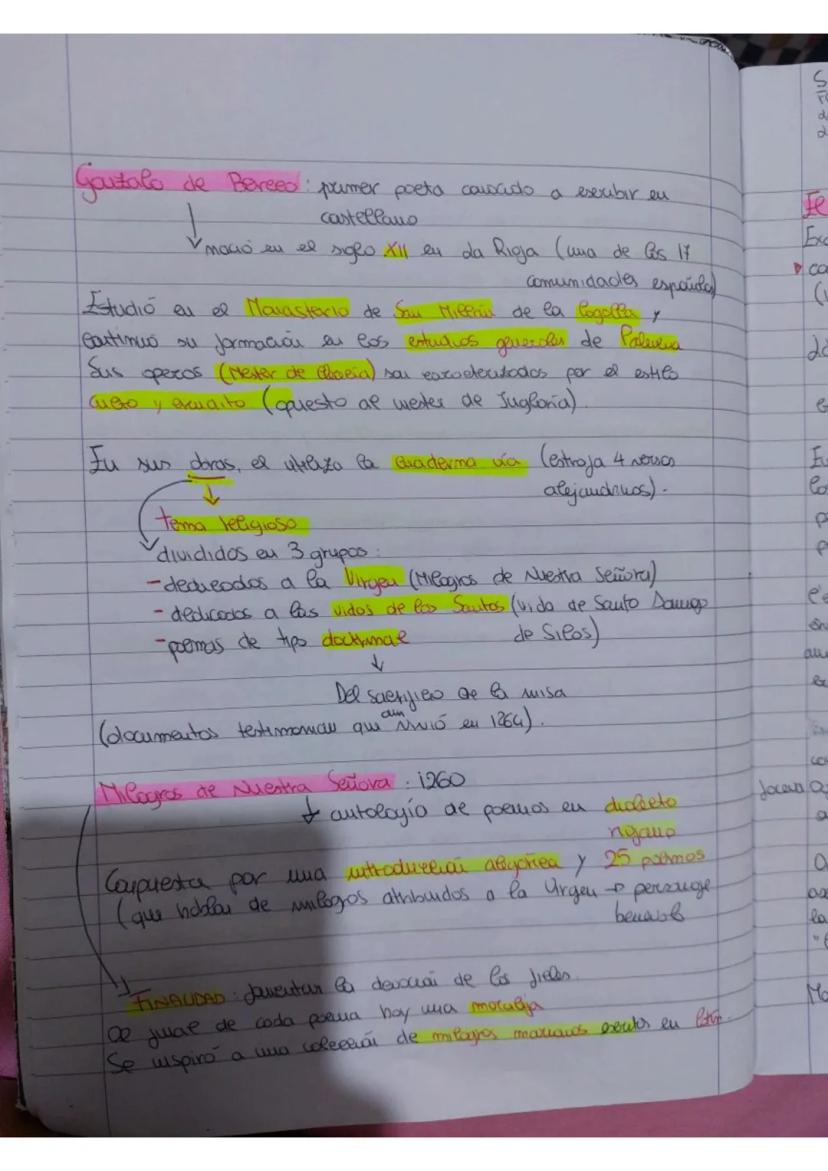 Gonzalo de Berceo: primer poeta conocido a escribir en
castellano
nació en el siglo XII en La Rioja (una de las 17
comunidades española)
Estudió en el Monasterio de San Millán de la Cogolla y
continuó su formación en los estudios generales de Palencia
Sus operas (Mester de Clerecía) son caracterizadas por el estilo
culto y erudito (opuesto al mester de Juglaría).
En sus obras, el utiliza la cuaderna vía (estrofa 4 versos
alejandrinos).
tema religioso
divididos en 3 grupos:
- dedicados a la Virgen (Milagros de Nuestra Señora)
- dedicados a las vidas de los Santos (vida de Santo Domingo
de Silos)
- poemas de tipo doctrinal
Del sacrificio de la misa
(documentos testimonian que aún vivió en 1264).
Milagros de Nuestra Señora: 1260
antología de poemas en dialecto
riojano
Compuesta por una introducción alegórica y 25 poemas
(que hablan de milagros atribuidos a la Virgen →
FINALIDAD: fomentar la devoción de los fieles.
Al final de cada poema hay una moraleja
Se inspiró a una colección de milagros marianos escritos en latín.